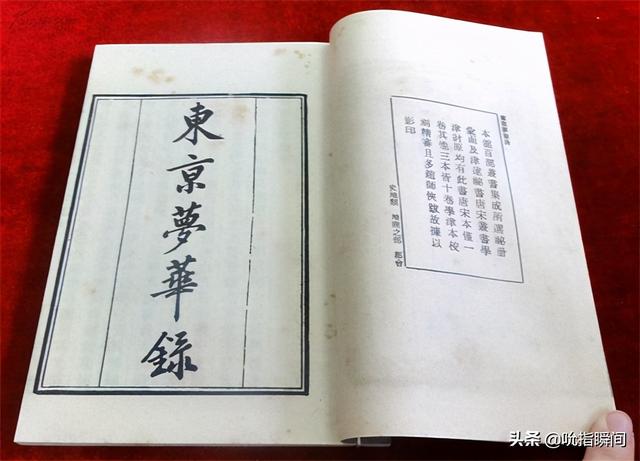 東京夢華錄
本館百部叢書集成所選祕冊
彙函及津逮祕書唐宋叢書學
津討原均有此書唐宋本僅一
卷其他三本皆十卷學津本校
刻精審且多趙師俠跋故據以
影印
史地類 地理之部 都會
头条 @吮指瞬间